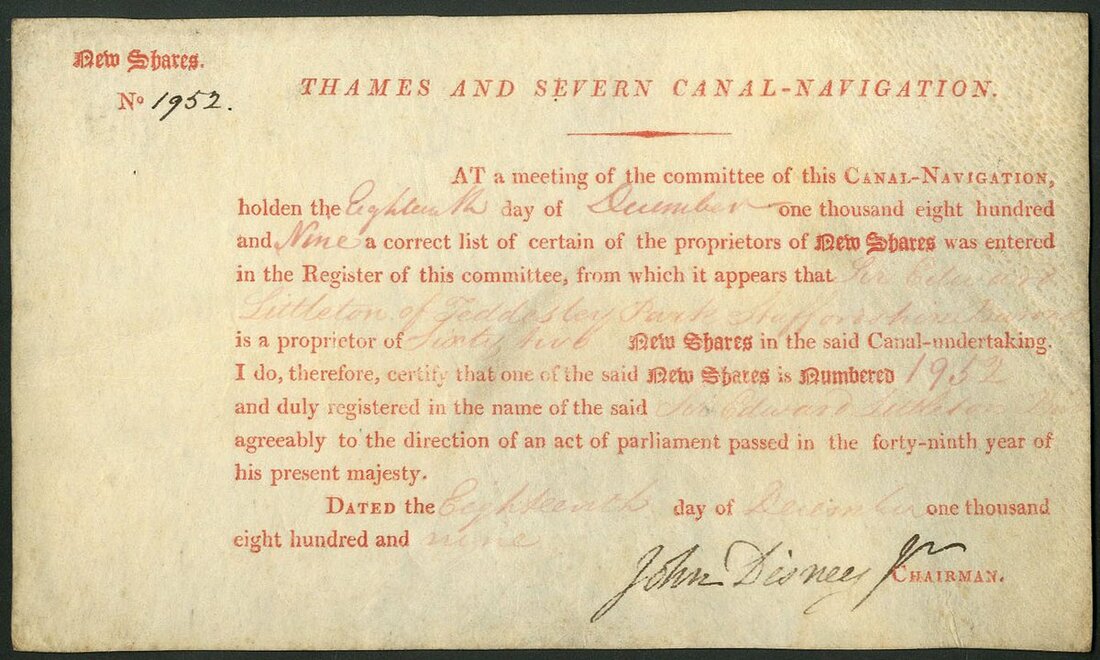 New Shares.
No 1952.
THAMES AND SEVERN CANAL-NAVIGATION.
AT a meeting of the committee of this CANAL-NAVIGATION,
holden the Eighteenth day of December one thousand eight hundred
and Nine a correct list of certain of the proprietors of New Shares was entered
in the Register of this committee, from which it appears that Sir Edward
Littleton of Teddesley Park Staffordshire Baronet
is a proprietor of Sixty two New Shares in the said Canal-undertaking.
I do, therefore, certify that one of the said New Shares is Numbered 1952
and duly registered in the name of the said Sir Edward Littleton
agreeably to the direction of an act of parliament passed in the forty-ninth year of
his present majesty.
DATED the Eighteenth day of December one thousand
eight hundred and nine
John Disney Jr CHAIRMAN.